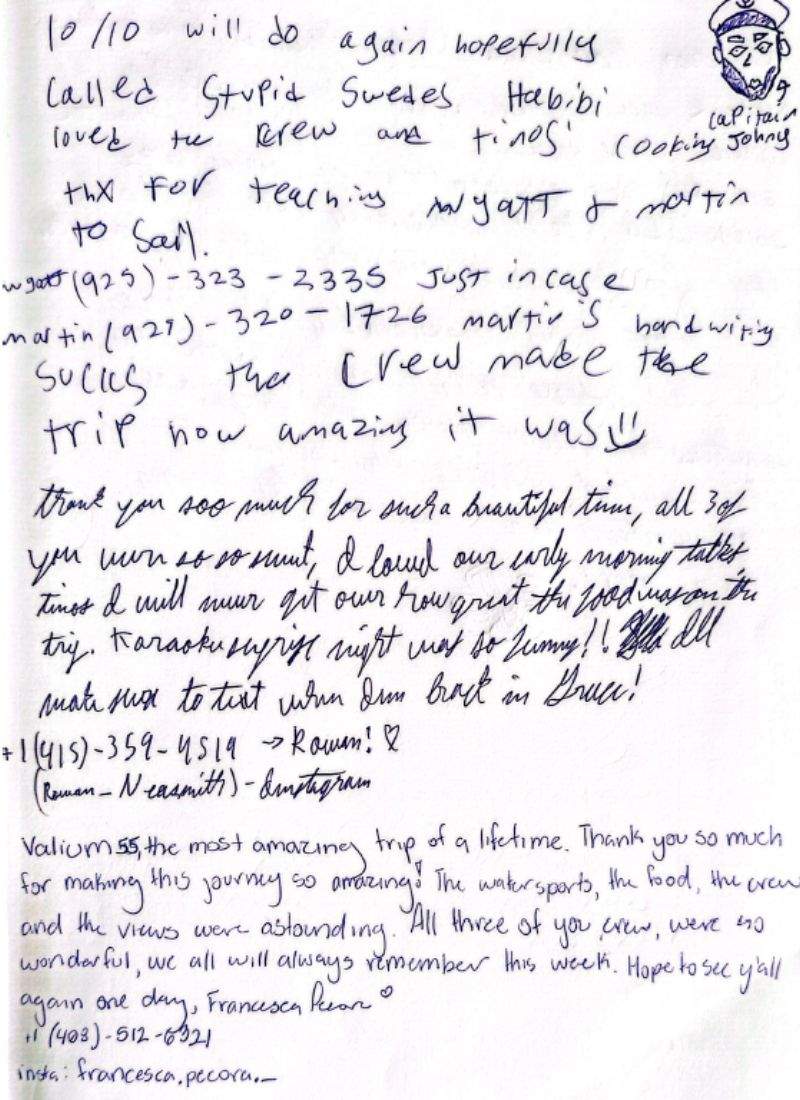 10/10 will do again hopefully
Called Stupid Swedes Habibi
loved the Crew and tinos' Cooking
Capitain
Johny
thx For teaching wyatt & martin
to Sail.
wyatt (925)-323-2335 Just incase
martin (925)-320-1726 martin's handwriting
SUCKS the Crew made the
trip how amazing it was
thank you soo much for such a beautiful time, all 3 of
you were so so sweet, I loved our early morning talks,
tinos I will never get over how great the food was on the
trip. Karaoke surprise night was so funny!! Ill
make sure to text when Im back in Greece!
+1(415)-359-4519 → Rowan! ♡
(Rowan_Neasmith)-Instagram
Valium 55, the most amazing trip of a lifetime. Thank you so much
for making this journey so amazing! The watersports, the food, the crew
and the views were astounding. All three of you crew, were so
wonderful, we all will always remember this week. Hope to see y'all
again one day, Francesca Pecora ♡
+1 (403)-512-6321
insta: francesca.pecora._